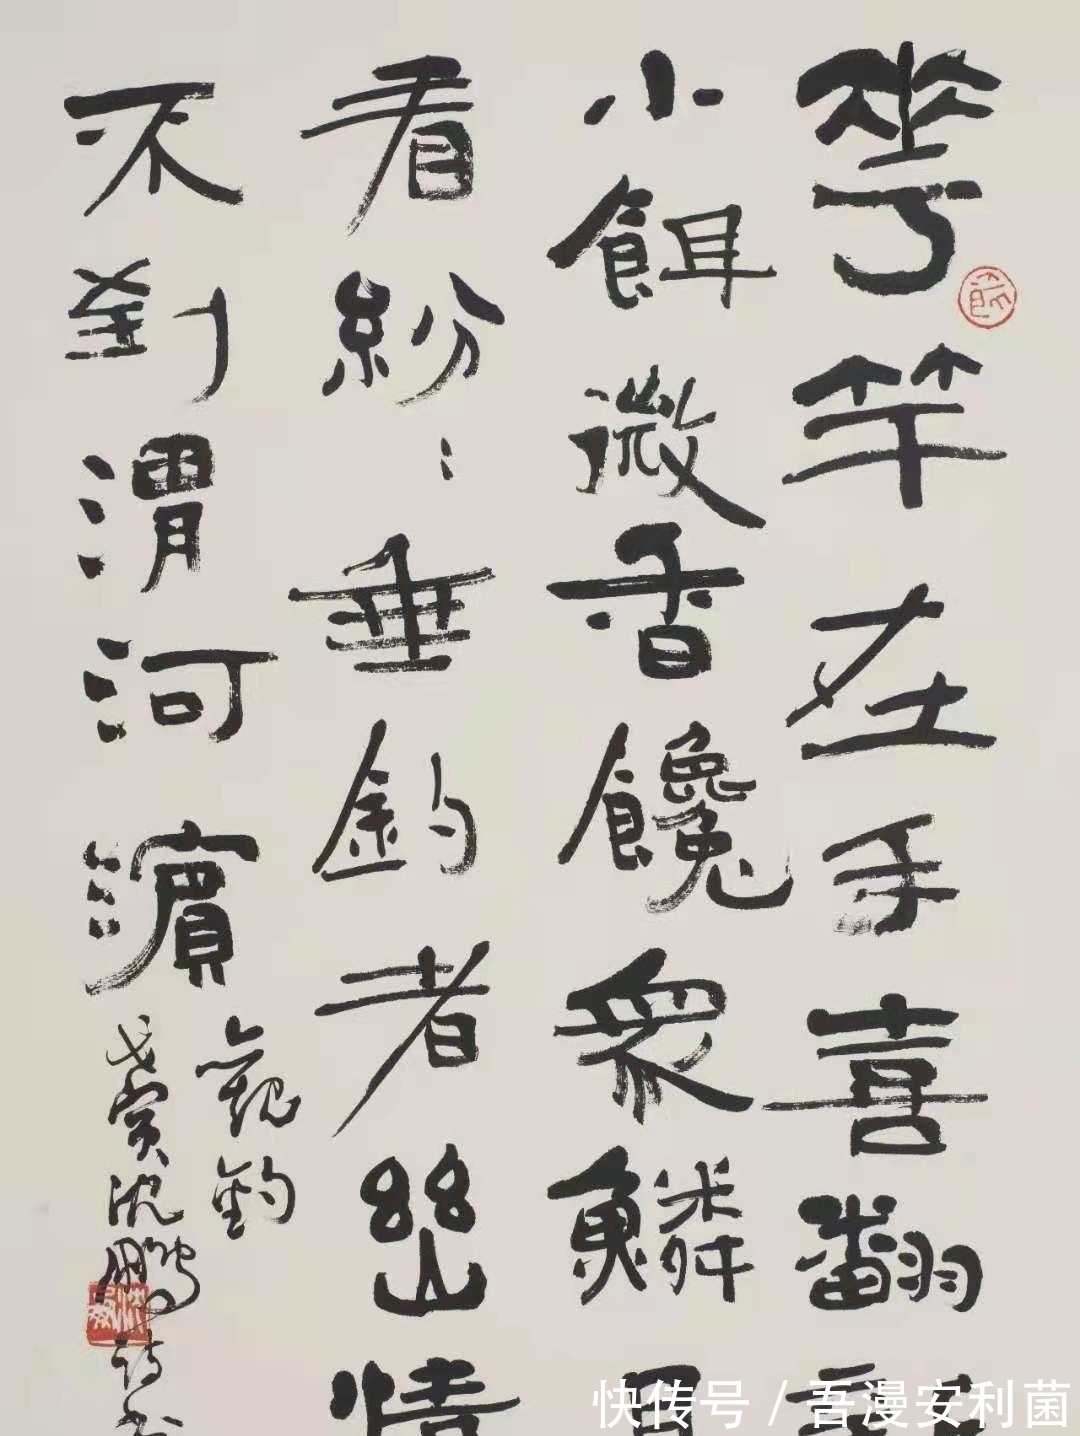 華竿在手喜翻
小餌微香饞眾鱗
看紛〻垂釣者幽情
不到渭河濱
觀釣
戊寅沈鵬詩书
快传号 / 吾漫安利菌